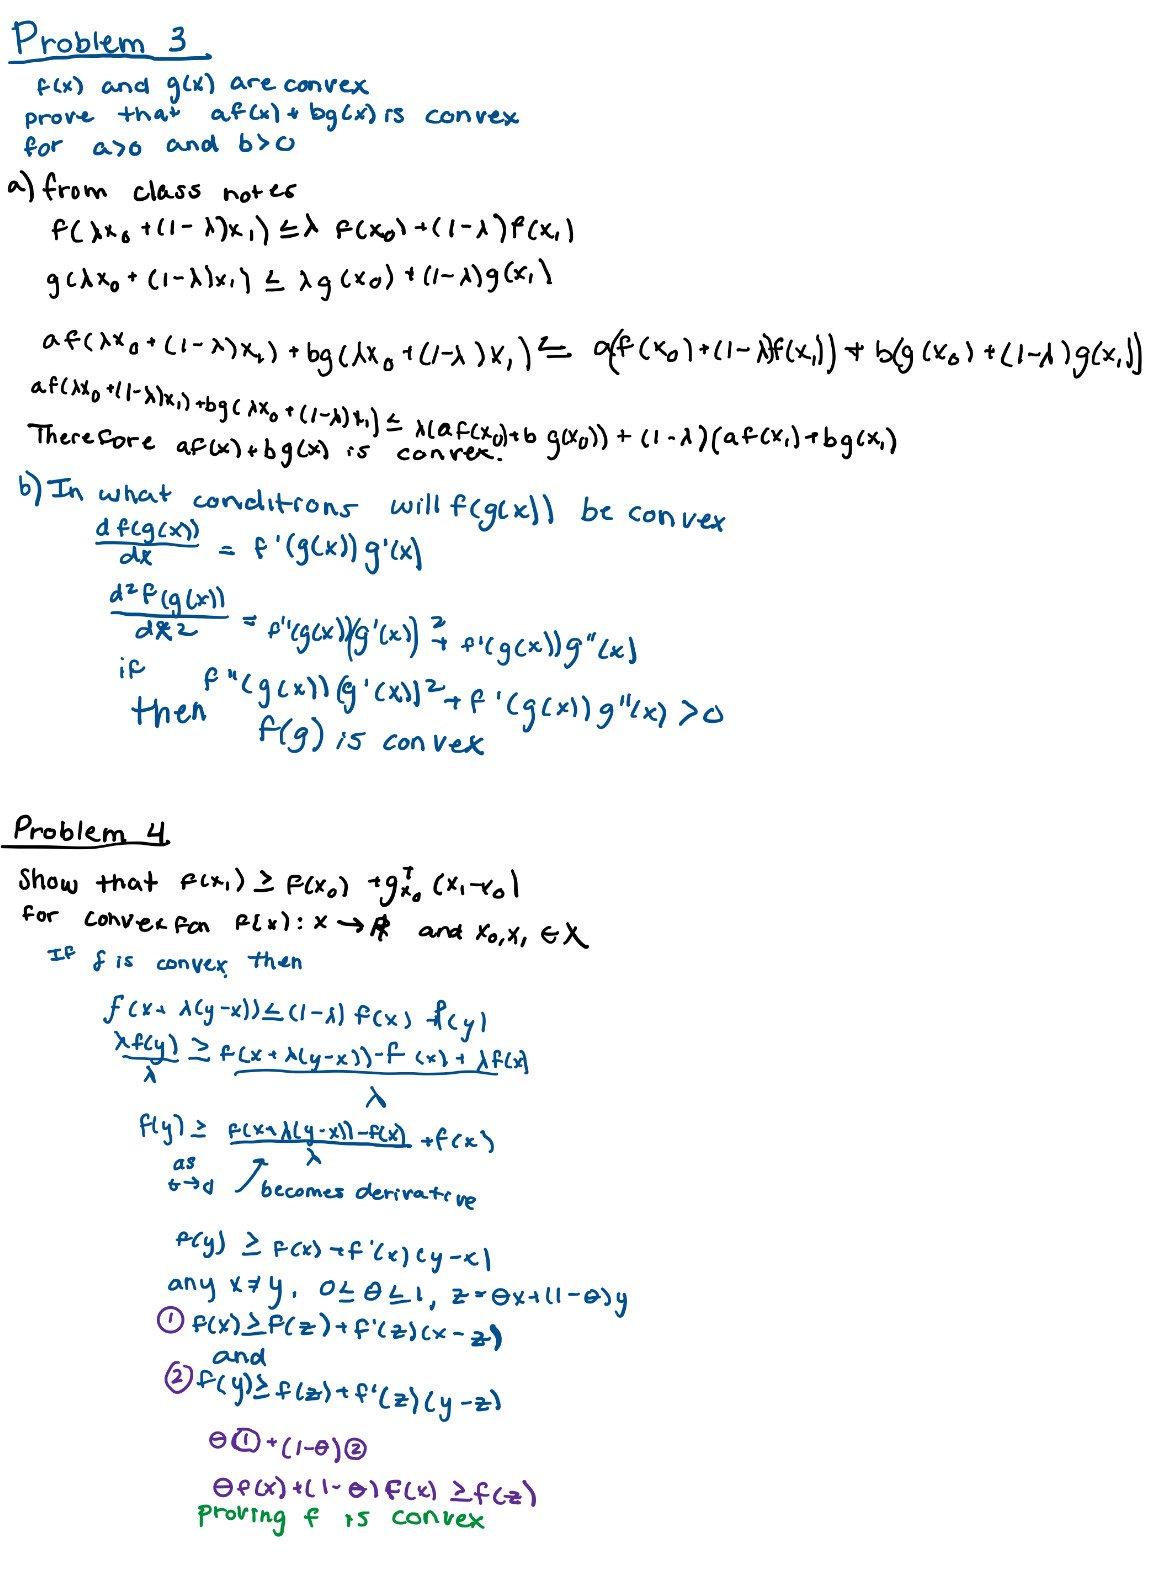 Problem 3
f(x) and g(x) are convex
prove that af(x) + bg(x) is convex
for a>0 and b>0
a) from class notes
f(λx₀ + (1-λ)x₁) ≤ λ f(x₀) + (1-λ) f(x₁)
g(λx₀ + (1-λ)x₁) ≤ λg(x₀) + (1-λ)g(x₁)
af(λx₀ + (1-λ)x₁) + bg(λx₀ + (1-λ)x₁) ≤ a(f(x₀) + (1-λ)f(x₁)) + b(g(x₀) + (1-λ)g(x₁))
af(λx₀ + (1-λ)x₁) + bg(λx₀ + (1-λ)x₁) ≤ λ(af(x₀) + b g(x₀)) + (1-λ)(af(x₁) + bg(x₁)
Therefore af(x) + bg(x) is convex.
b) In what conditions will f(g(x)) be convex
d f(g(x))/dx = f'(g(x)) g'(x)
d² f(g(x))/dx² = f''(g(x))(g'(x))² + f'(g(x))g''(x)
if f''(g(x))(g'(x))² + f'(g(x))g''(x) >0
then f(g) is convex
Problem 4
Show that f(x₁) ≥ f(x₀) + gᵀx₀ (x₁-x₀)
for convex fcn f(x): X → ℝ and x₀,x₁ ∈ X
If f is convex, then
f(x + λ(y-x)) ≤ (1-λ) f(x) + f(y)
λf(y)/λ ≥ f(x + λ(y-x)) - f(x) + λf(x)/λ
f(y) ≥ f(x+λ(y-x)) - f(x)/λ + f(x)
as
becomes derivative
f(y) ≥ f(x) + f'(x)(y-x)
any x≠y, 0≤θ≤1, z=θx+(1-θ)y
① f(x) ≥ f(z) + f'(z)(x-z)
and
② f(y) ≥ f(z) + f'(z)(y-z)
θ① + (1-θ)②
θf(x) + (1-θ) f(x) ≥ f(z)
proving f is convex